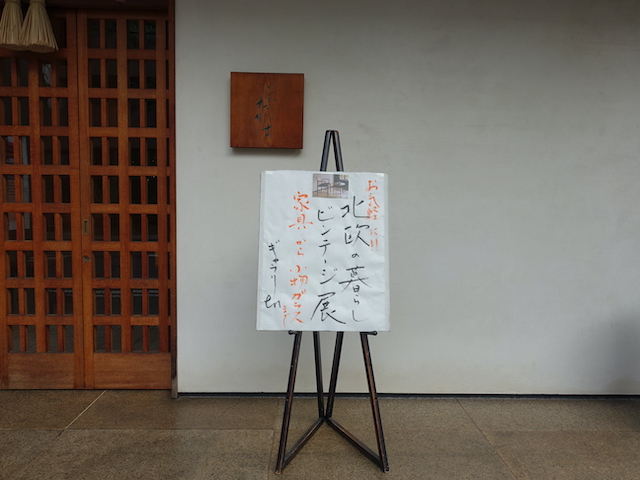 お気軽に!!
北欧の暮らし
ビンテージ展
家具から小物ガラスまで
ギャラリー